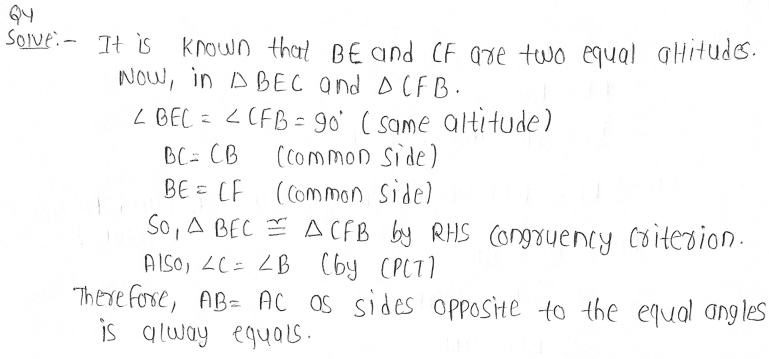 Q4
Solve:- It is known that BE and CF are two equal altitudes.
Now, in Δ BEC and Δ CFB.
∠ BEC = ∠ CFB = 90° (same altitude)
BC = CB (common side)
BE = CF (common side)
So, Δ BEC ≅ Δ CFB by RHS congruency criterion.
Also, ∠C = ∠B (by CPCT)
Therefore, AB = AC as sides opposite to the equal angles
is alway equals.